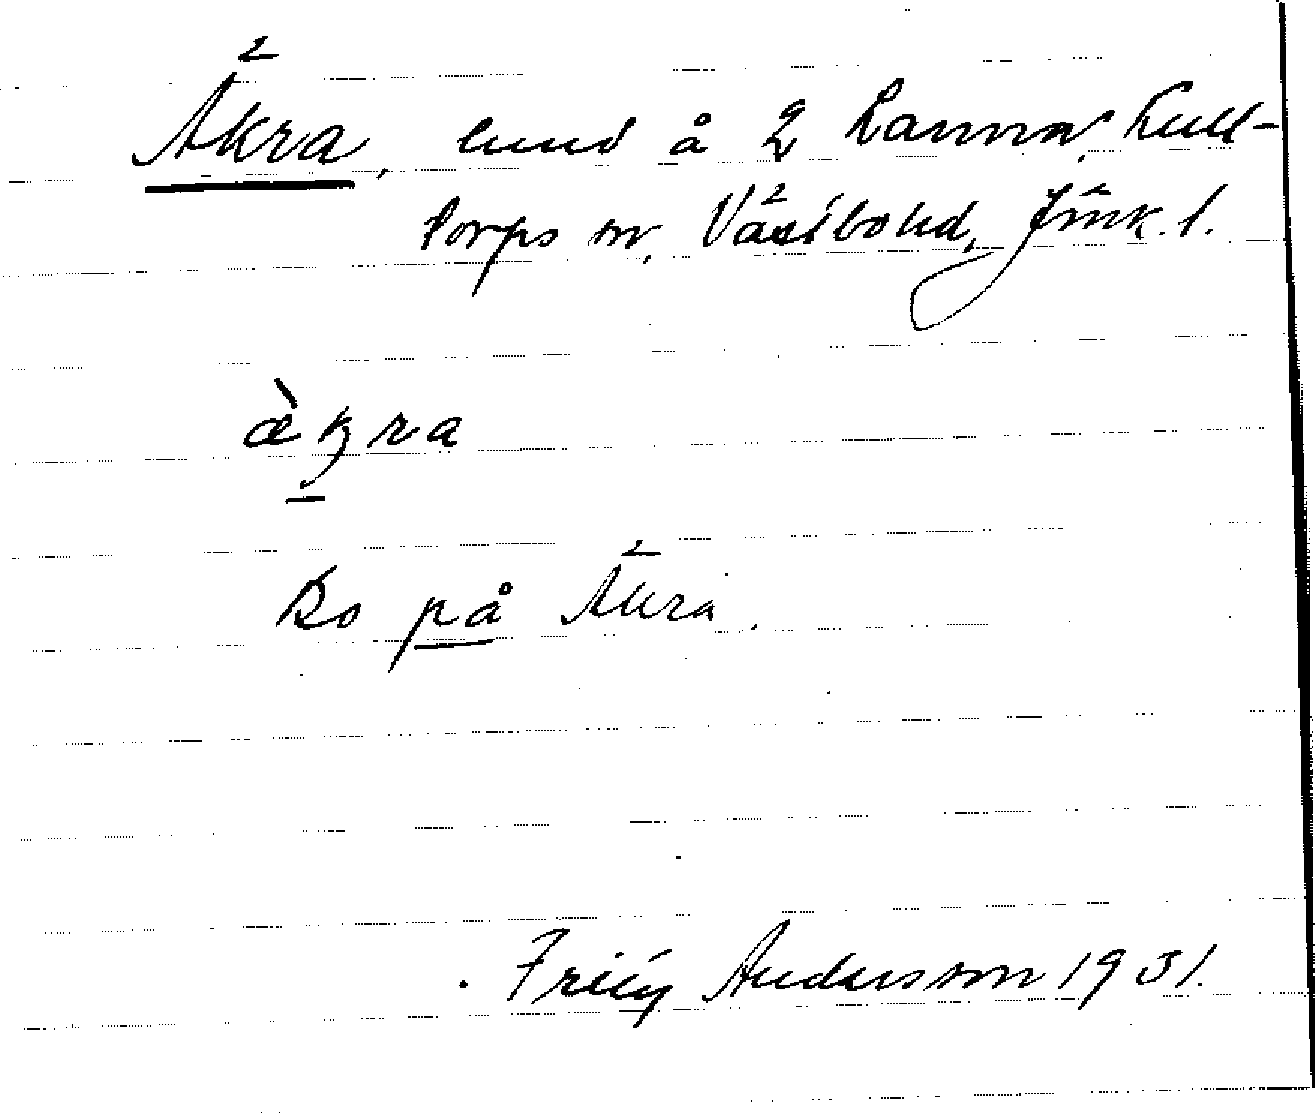 Äkra, lund å 2 Lanna, Kull-
torps sn, Västbo hd, Jönk. l.
ækra
Bo på Äkra.
Andersson 1931.